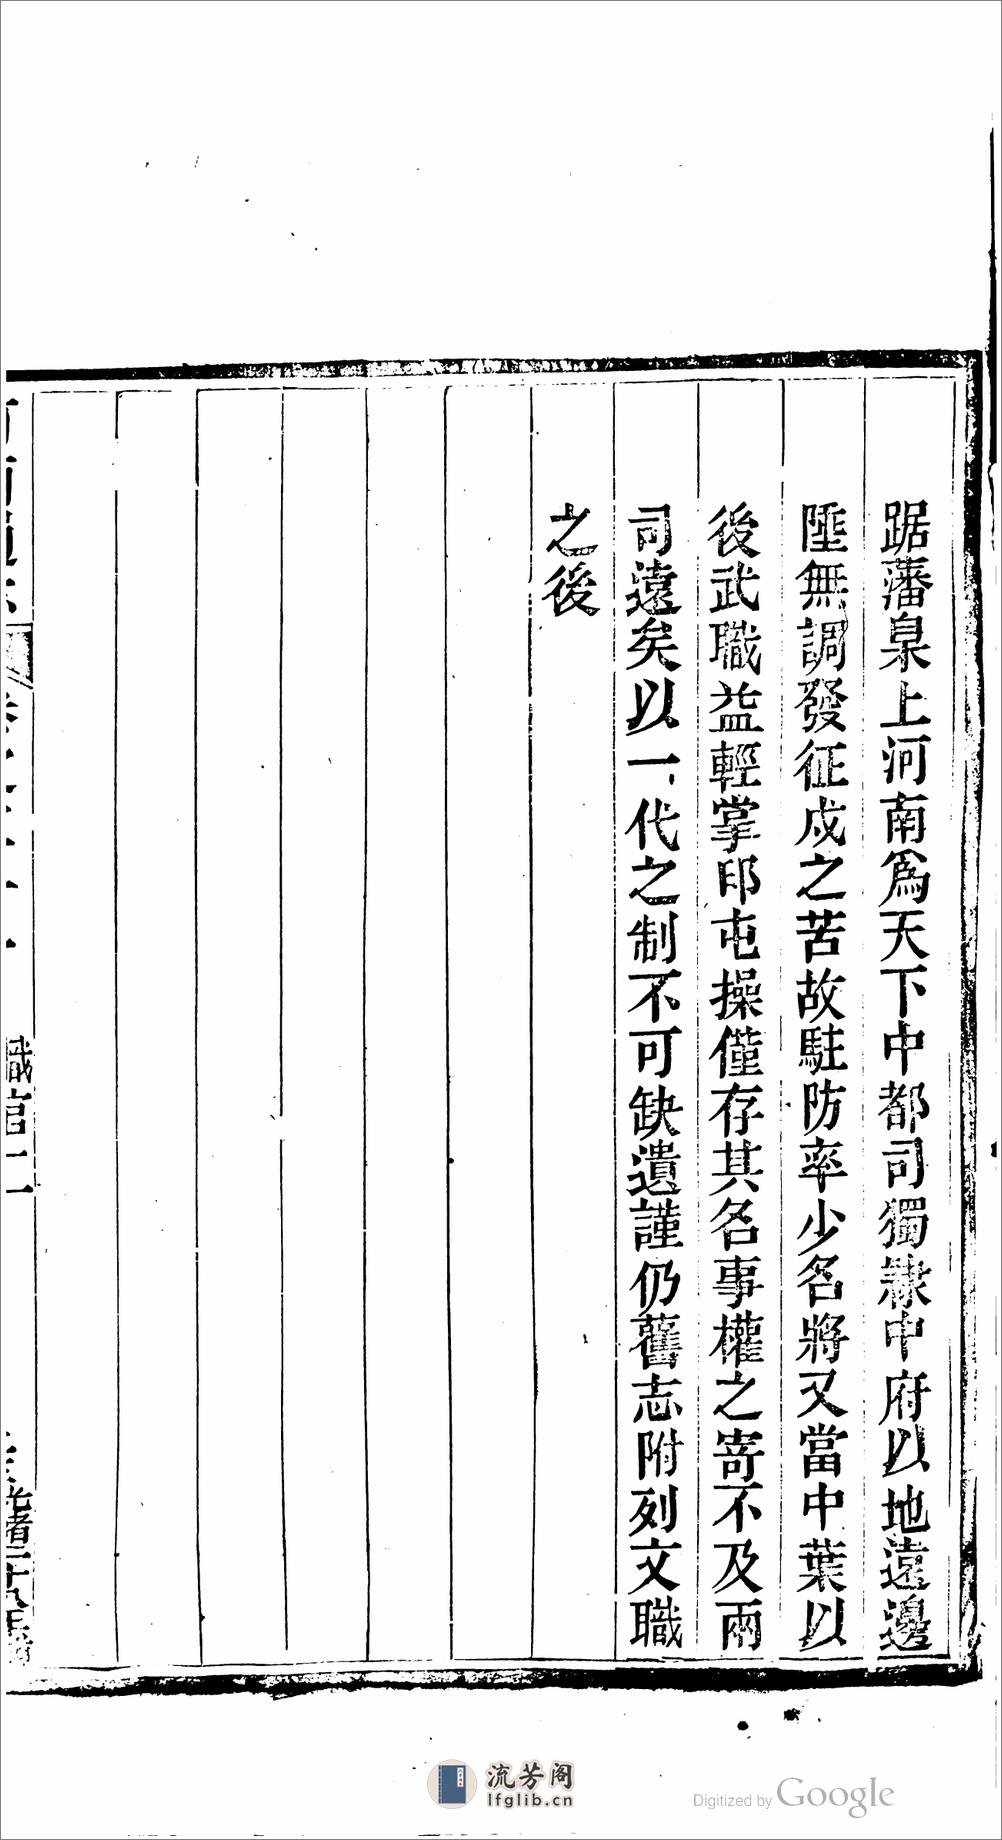 踞藩臬上河南爲天下中都司獨隸中府以地遠邊
陲無調發征戍之苦故駐防率少名將又當中葉以
後武職益輕掌印屯操僅存其名事權之寄不及兩
司遠矣以一代之制不可缺遺謹仍舊志附列文職
之後
職官二
光緒二十八年
流芳阁
lfglib.cn
Digitized by Google